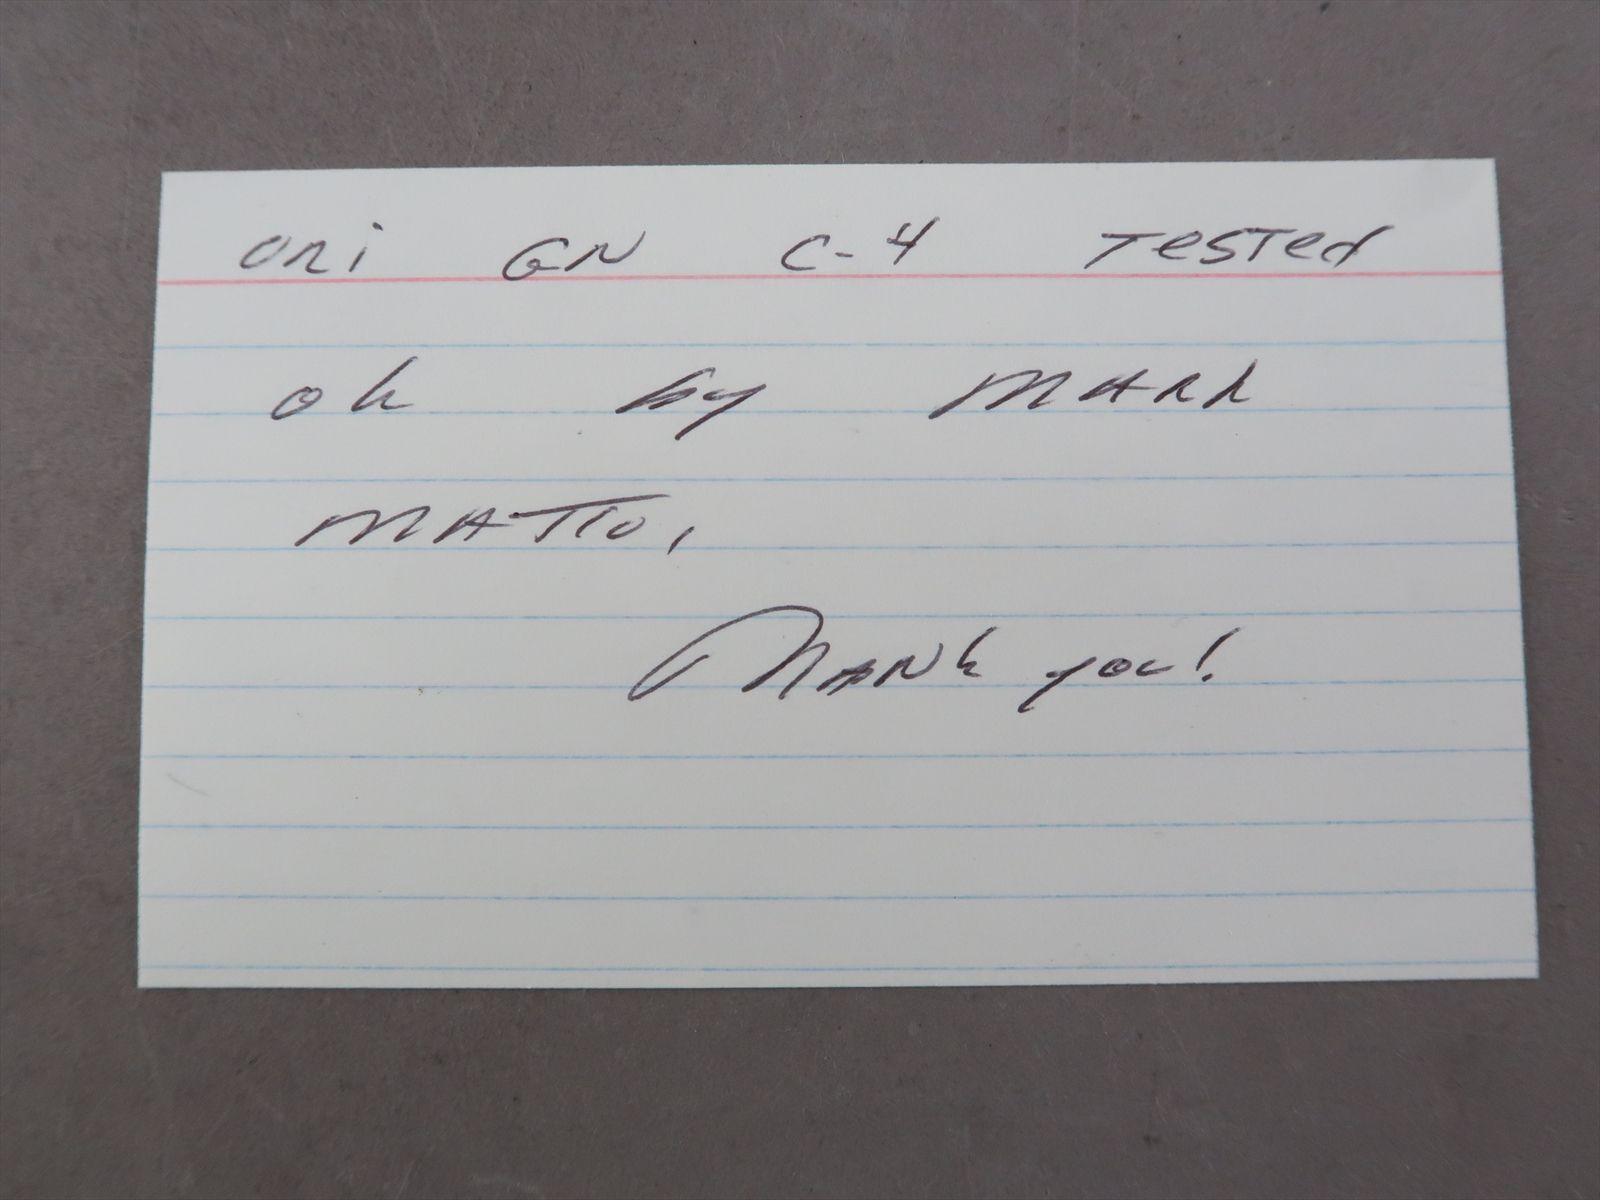 ORi GN C-4 Tested
ok by MARK
MATTO,
Thank you!